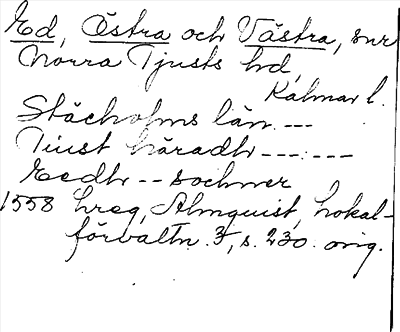 Ed, Östra och Västra, snr
Norra Tjusts hd,
Kalmar l.
Stächolms län ---
Tiust häradh ---:---
Eedh -- sochner
1558 hreg, Almquist, Lokal-
förvaltn. 3, s. 230. orig.